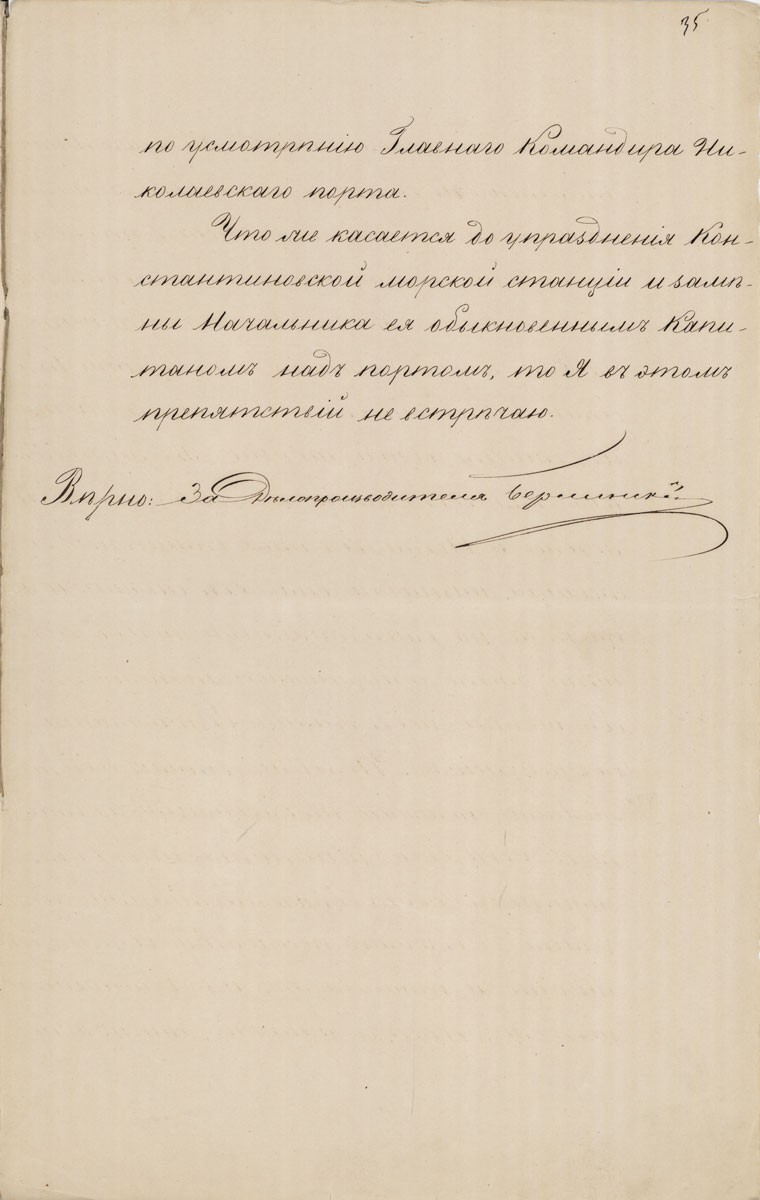 35
по усмотрѣнію Главнаго Командира Ни-
колаевскаго порта.
Что же касается до упраздненія Кон-
стантиновской морской станціи и замѣ-
ны Начальника ея обыкновеннымъ Капи-
таномъ надъ портомъ, то Я въ этомъ
препятствій не встрѣчаю.
Вѣрно: За Дѣлопроизводителя